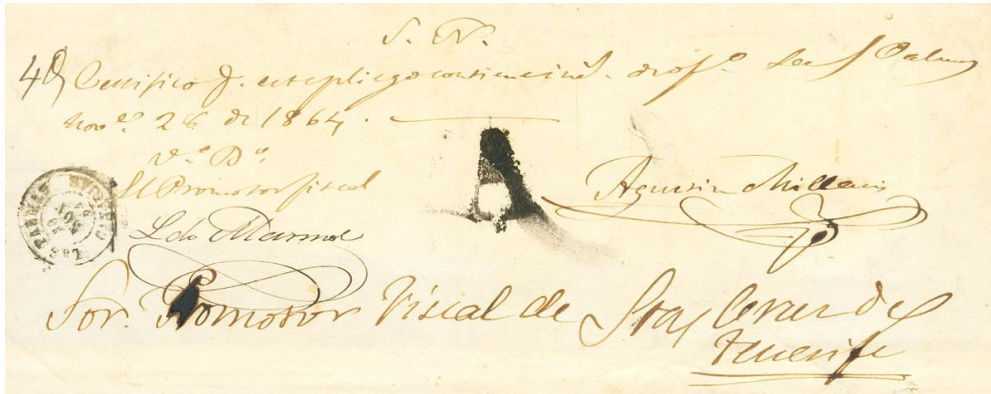 S. N.
Certifico q. este pliego contiene ind. de of.º Las Palmas
Nov.e 26 de 1864.
V.º B.º
El Promotor fiscal
Ldo Marmol
Agustin Millares
LAS PALMAS
NOV
Sor. Promotor Fiscal de Sta Cruz de
Tenerife